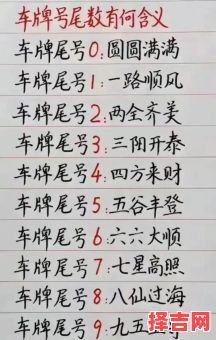 车牌号尾数有何含义
车牌尾号0:圆圆满满
车牌尾号1:一路顺风
车牌尾号2:两全齐美
车牌尾号3:三阳开泰
车牌尾号4:四方来财
车牌尾号5:五谷丰登
车牌尾号6:六六大顺
车牌尾号7:七星高照
车牌尾号8:八仙过海
车牌尾号9:九五
择吉网